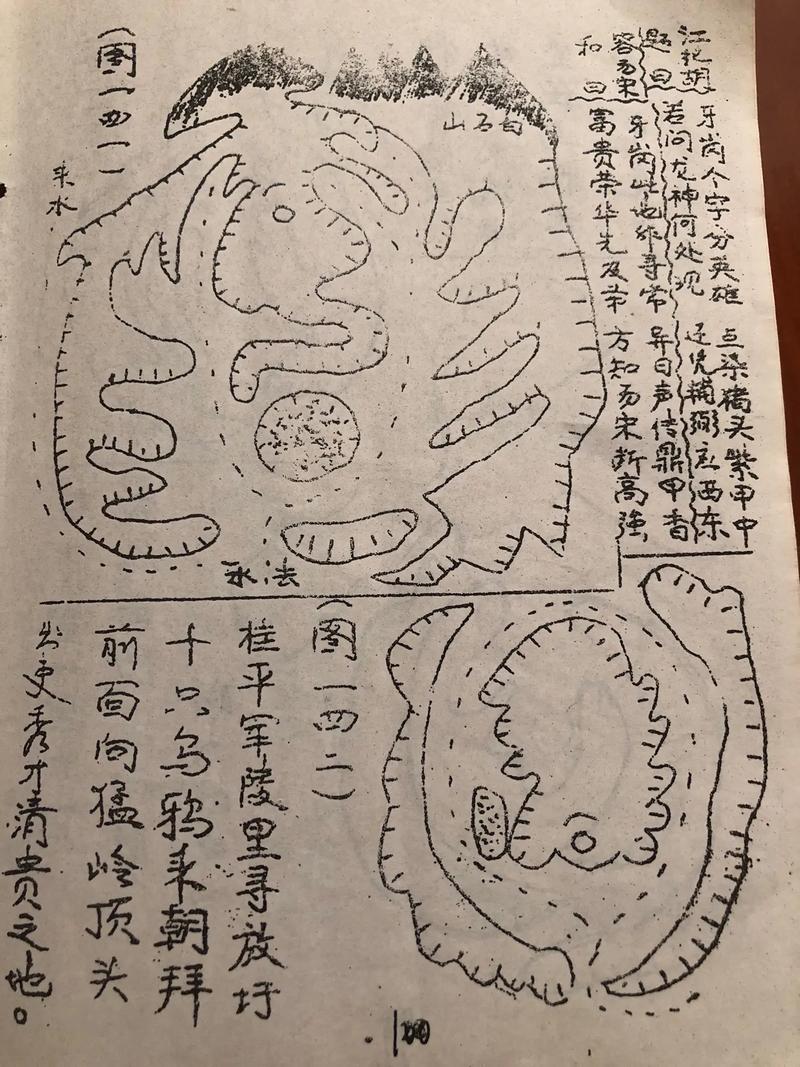 题曰
牙岗个字分英雄 点染猪头紫甲中
若问龙神何处现 还凭辅弼应西东
和曰
牙岗此地非寻常 异日声传鼎甲香
富贵荣华先及弟 方知易宋断高强
白石山
(图一四一)
来水
水法
(图一四二)
桂平军陵里寻放圩
十只乌鸦来朝拜
前面向猛岭顶头
秀才清贵之地。